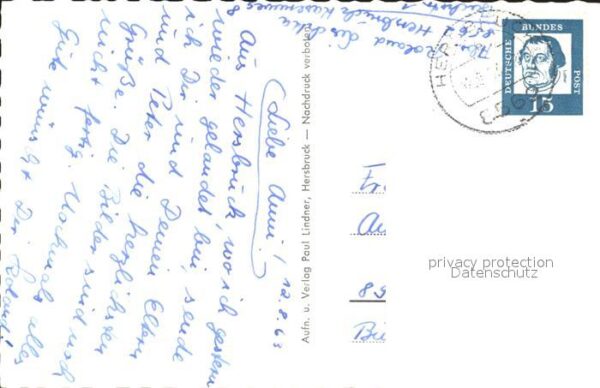 Liebe Anni! 12.8.63
Aus Hersbruck wo ich gestern
wieder gelandet bin sende
ich Dir und Deinen Eltern
und Peter die herzlichsten
Grüße. Die Bilder sind noch
nicht fertig. Nochmals alles
Gute wünscht Dir Roland!
Roland
8562 Hersbruck
Aufn. u. Verlag Paul Lindner, Hersbruck — Nachdruck verboten
DEUTSCHE BUNDESPOST
15
privacy protection
Datenschutz